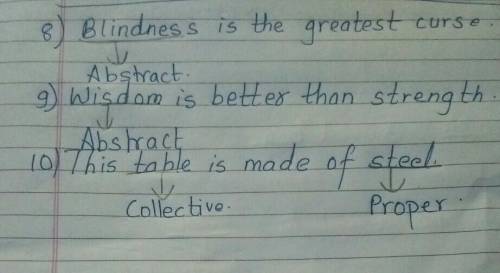 8) Blindness is the greatest curse.
Abstract.
9) Wisdom is better than strength.
Abstract
10) This table is made of steel.
Collective. Proper.